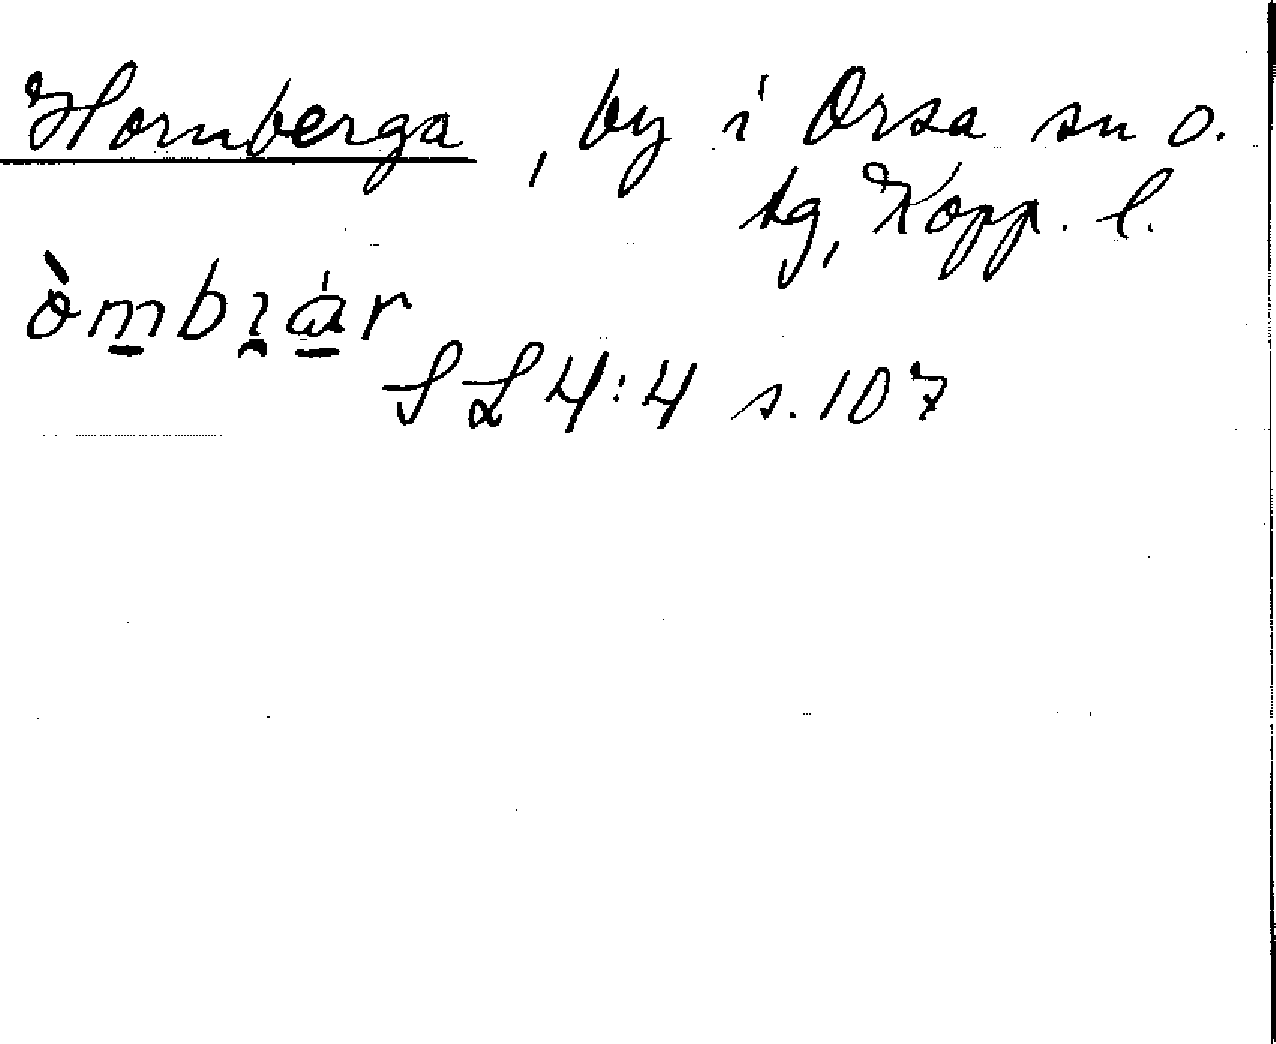 Hornberga, by i Orsa sn o.
tg, Kopp. l.
òm̱bı̯á̱r
SL 4:4 s. 107